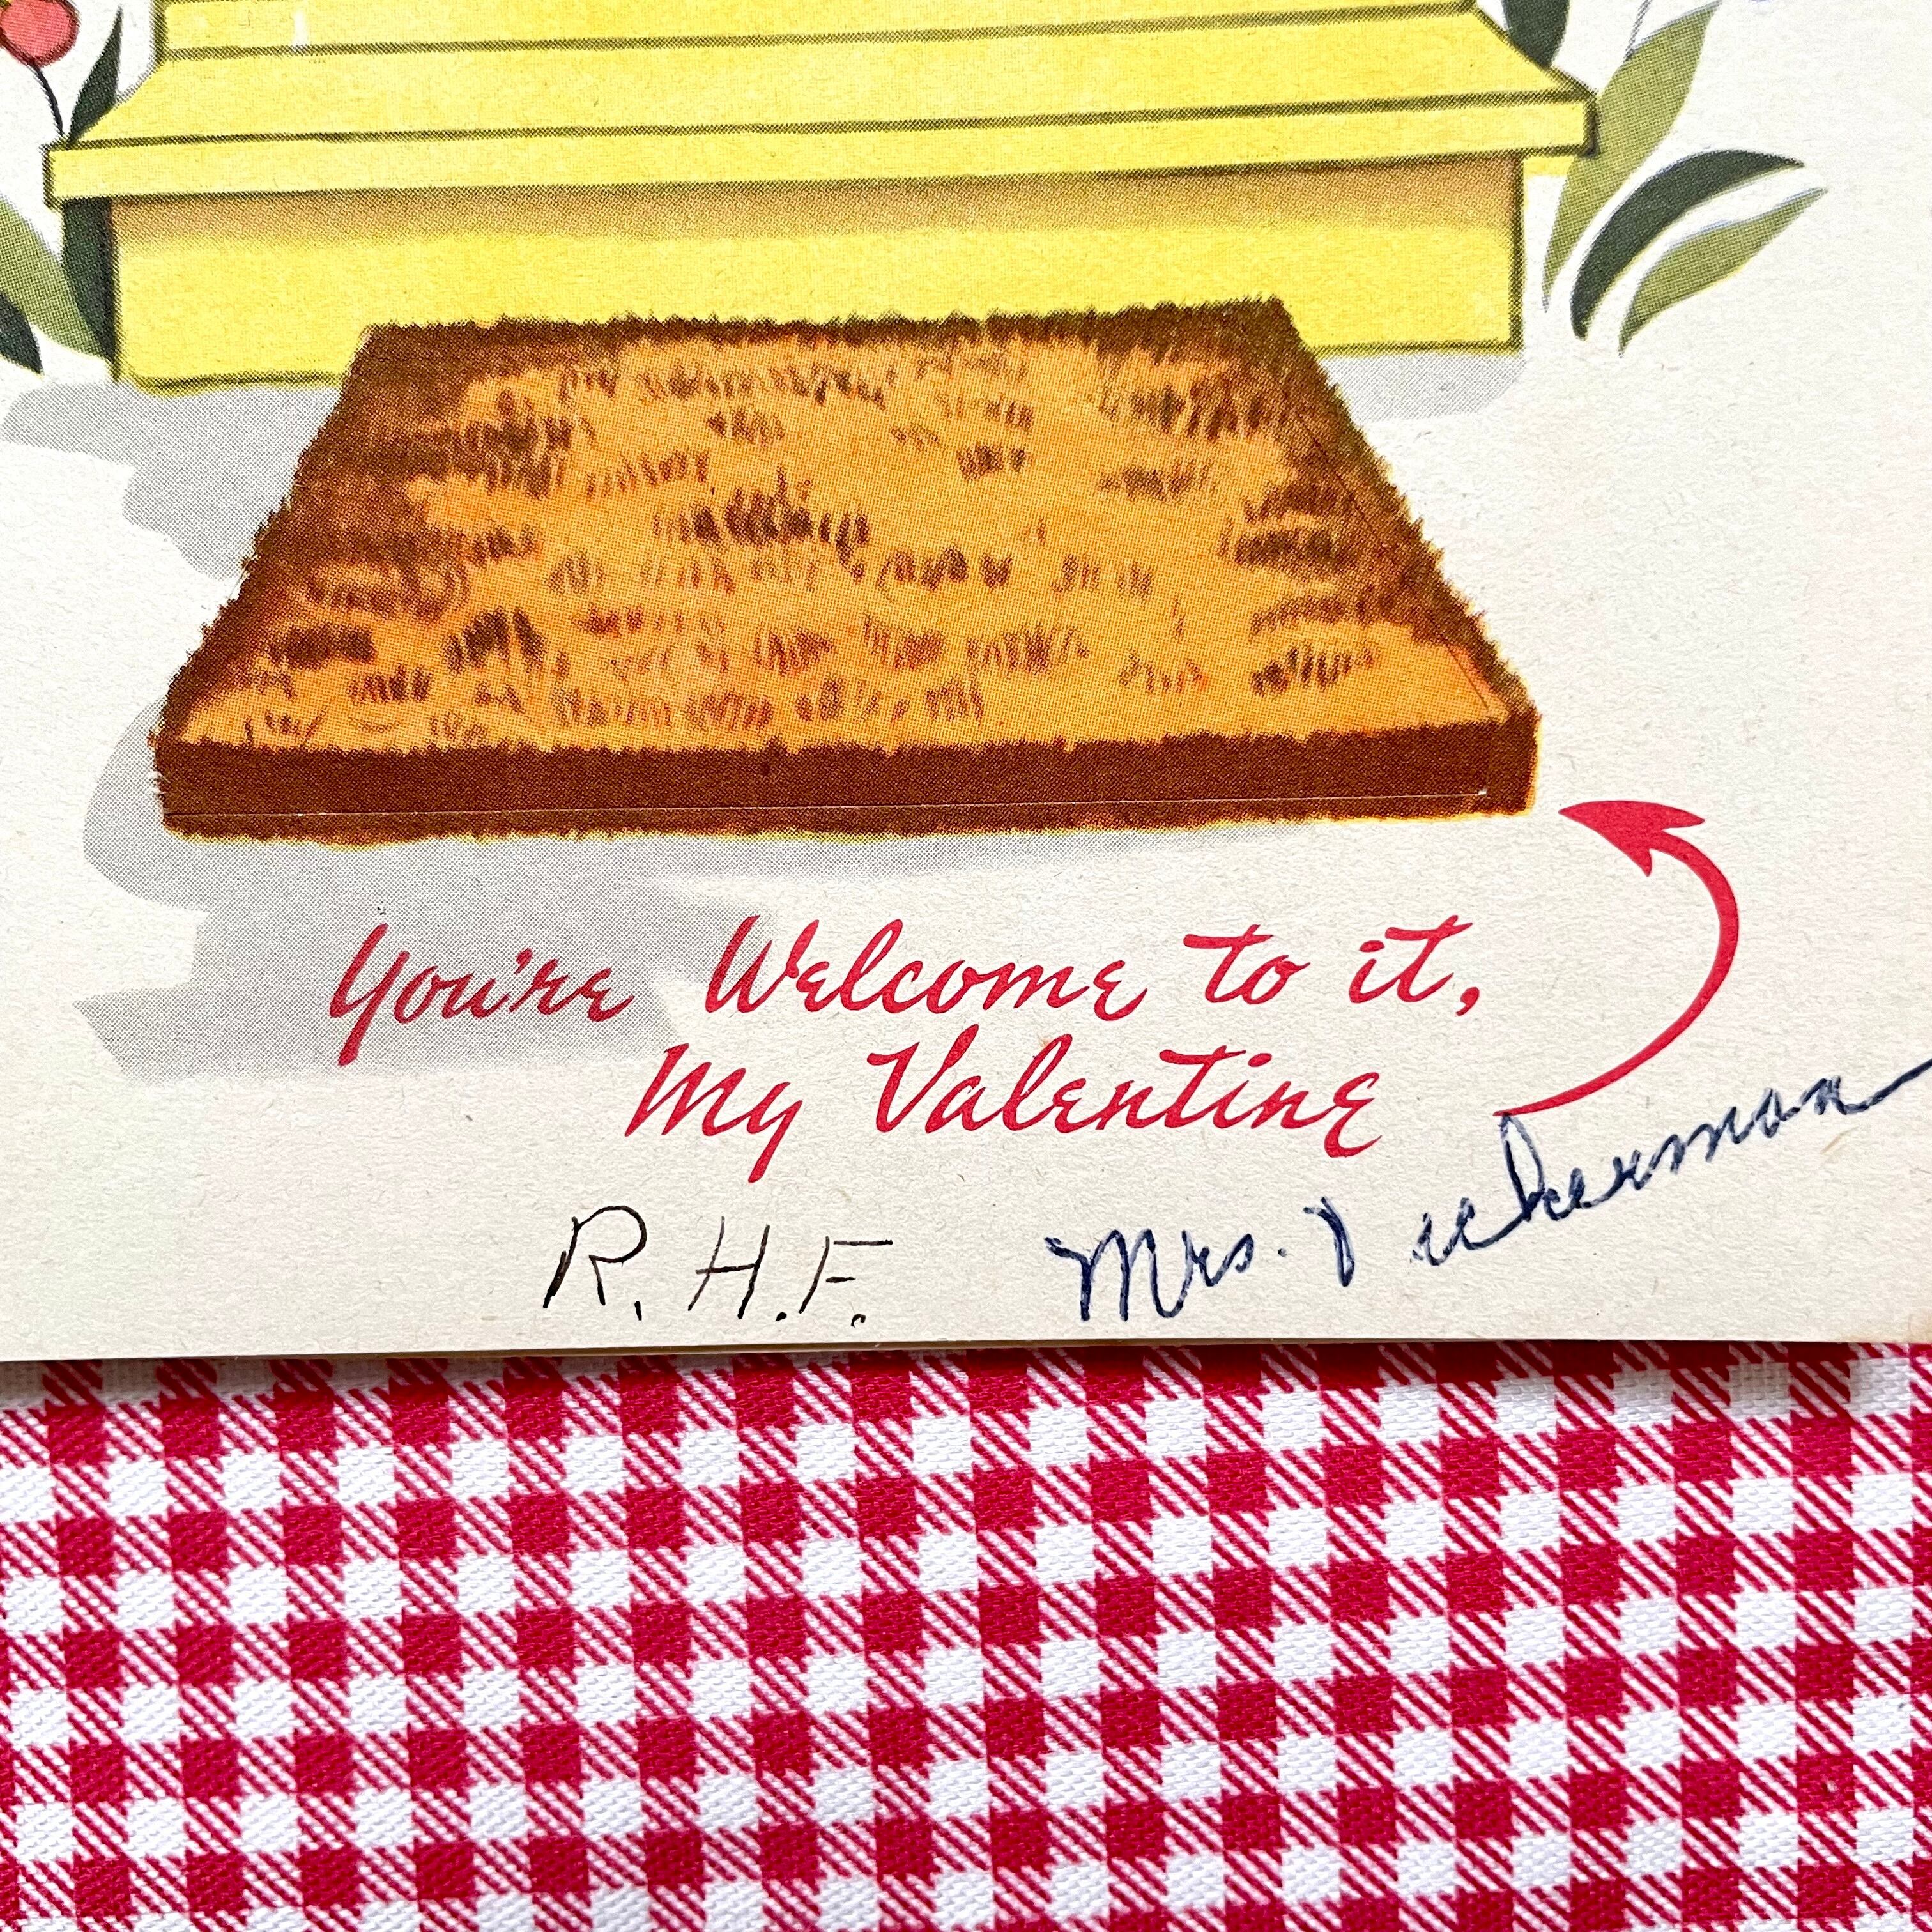 You're Welcome to it,
My Valentine
R.H.F. Mrs.